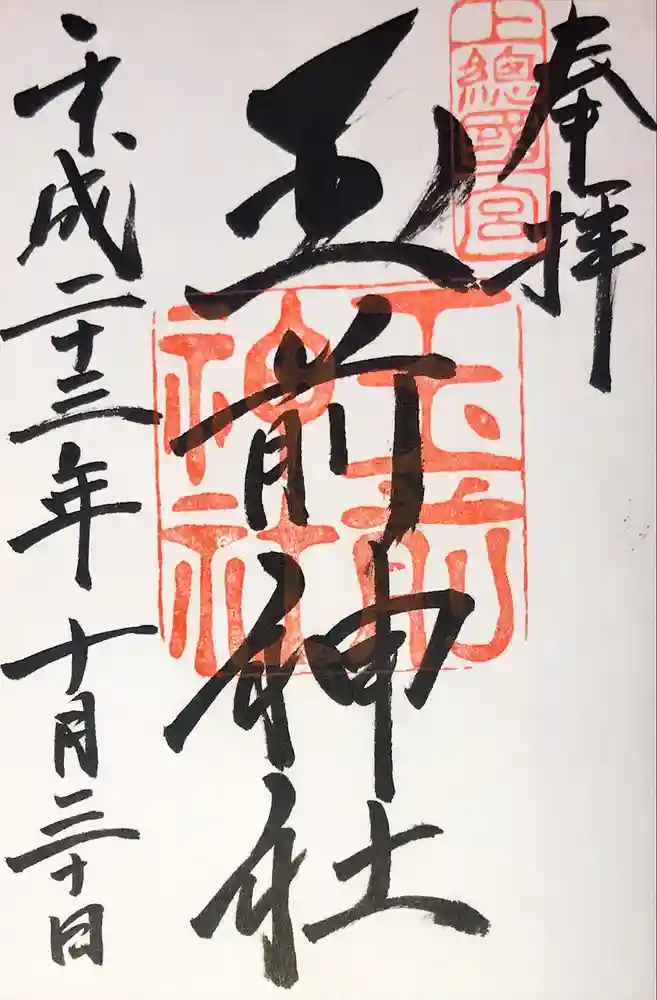 奉拝
上總國一宮
玉前神社
玉前神社
平成二十三年十月三十日